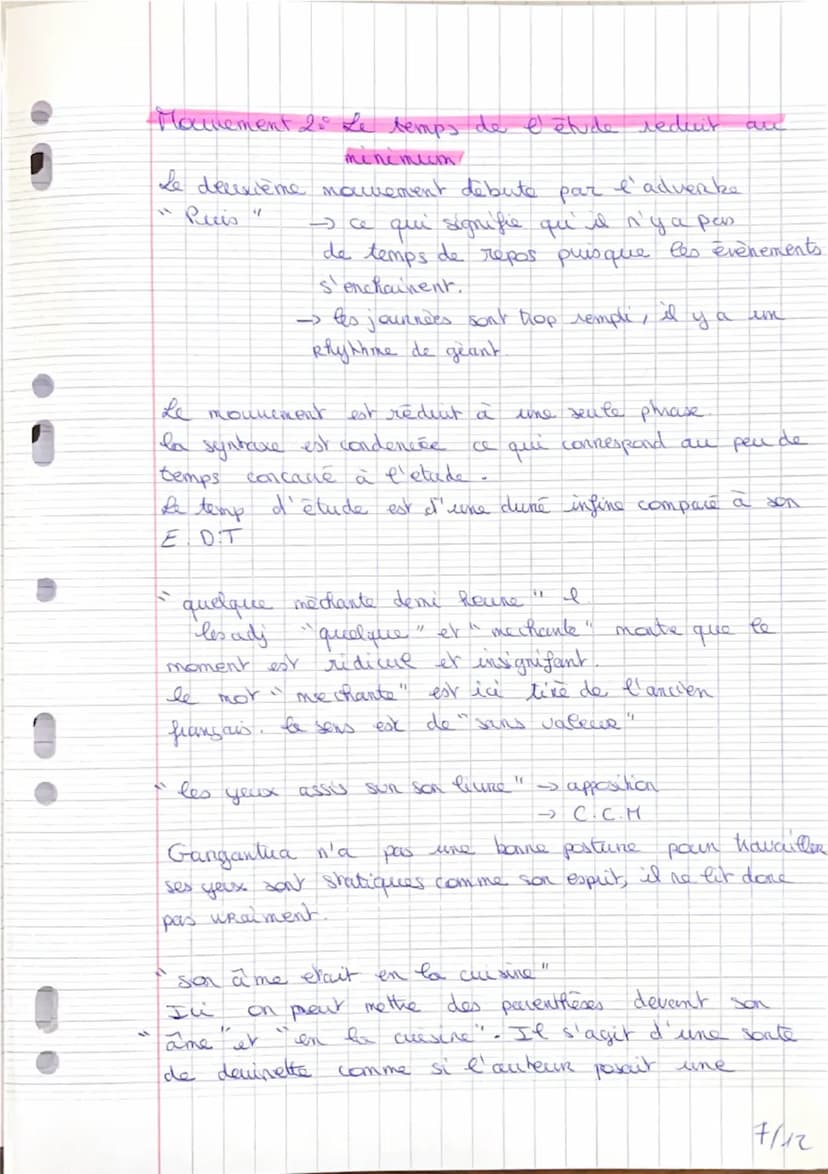 Mouvement 2: Le temps de l'étude reduit au
minimum
Le deuxième mouvement débute par l'adverbe
"Puis" → ce qui signifie qu'il n'y a pas
de temps de repos puisque les évènements
s'enchainent.
→ les journnées sont trop rempli, il y a un
Rhythme de géant.
Le mouvement est réduit à une seule phrase.
la syntaxe est condencée ce qui correspond au peu de
temps concacré à l'etude.
Le temp d'étude est d'une duré infine comparé à son
E.D.T
"quelque méchante demi heure"
les adj "quelque" et "mechante" monte que le
moment est ridicule et insignifant.
le mot "mechante" est ici tiré de l'ancien
français. le sens est de "sans valeur"
"les yeux assis sur son livre" → apposition
→ C.C.M
Gangantua n'a pas une bonne posture pour travailler
ses yeux sont statiques comme son esprit, il ne lit donc
pas vraiment.
"son âme etait en la cuisine"
Ici on peut mettre des parenthèses devant son
"âme" et "en la cuisine". Il s'agit d'une sorte
de devinette comme si l'auteur posait une
7/12